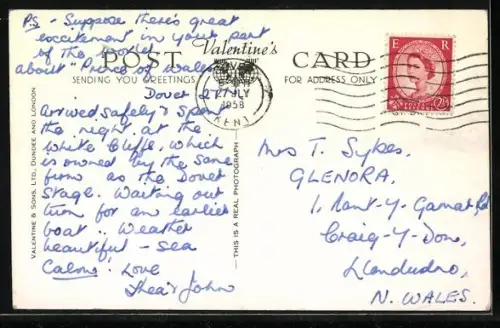 PS - Suppose there's great
excitement in your part
of the world
about "Prince of Wales"
POST Valentine's CARD
SENDING YOU GREETINGS
FOR ADDRESS ONLY
Dover 27
DOVER
JLY
1958
KENT
E R
POSTAGE
Arrived safely & spent
the night at the
White Cliffs, which
is owned by the same
firm as the Dover
Stage. Waiting out
turn for an earlier
boat.. Weather
beautiful - sea
Calm! Love
Thea & John
VALENTINE & SONS, LTD., DUNDEE AND LONDON
THIS IS A REAL PHOTOGRAPH
Mrs T. Sykes,
GLENORA,
1, Nant-Y-Gamar Rd
Craig-Y-Don,
Llandudno,
N. WALES.